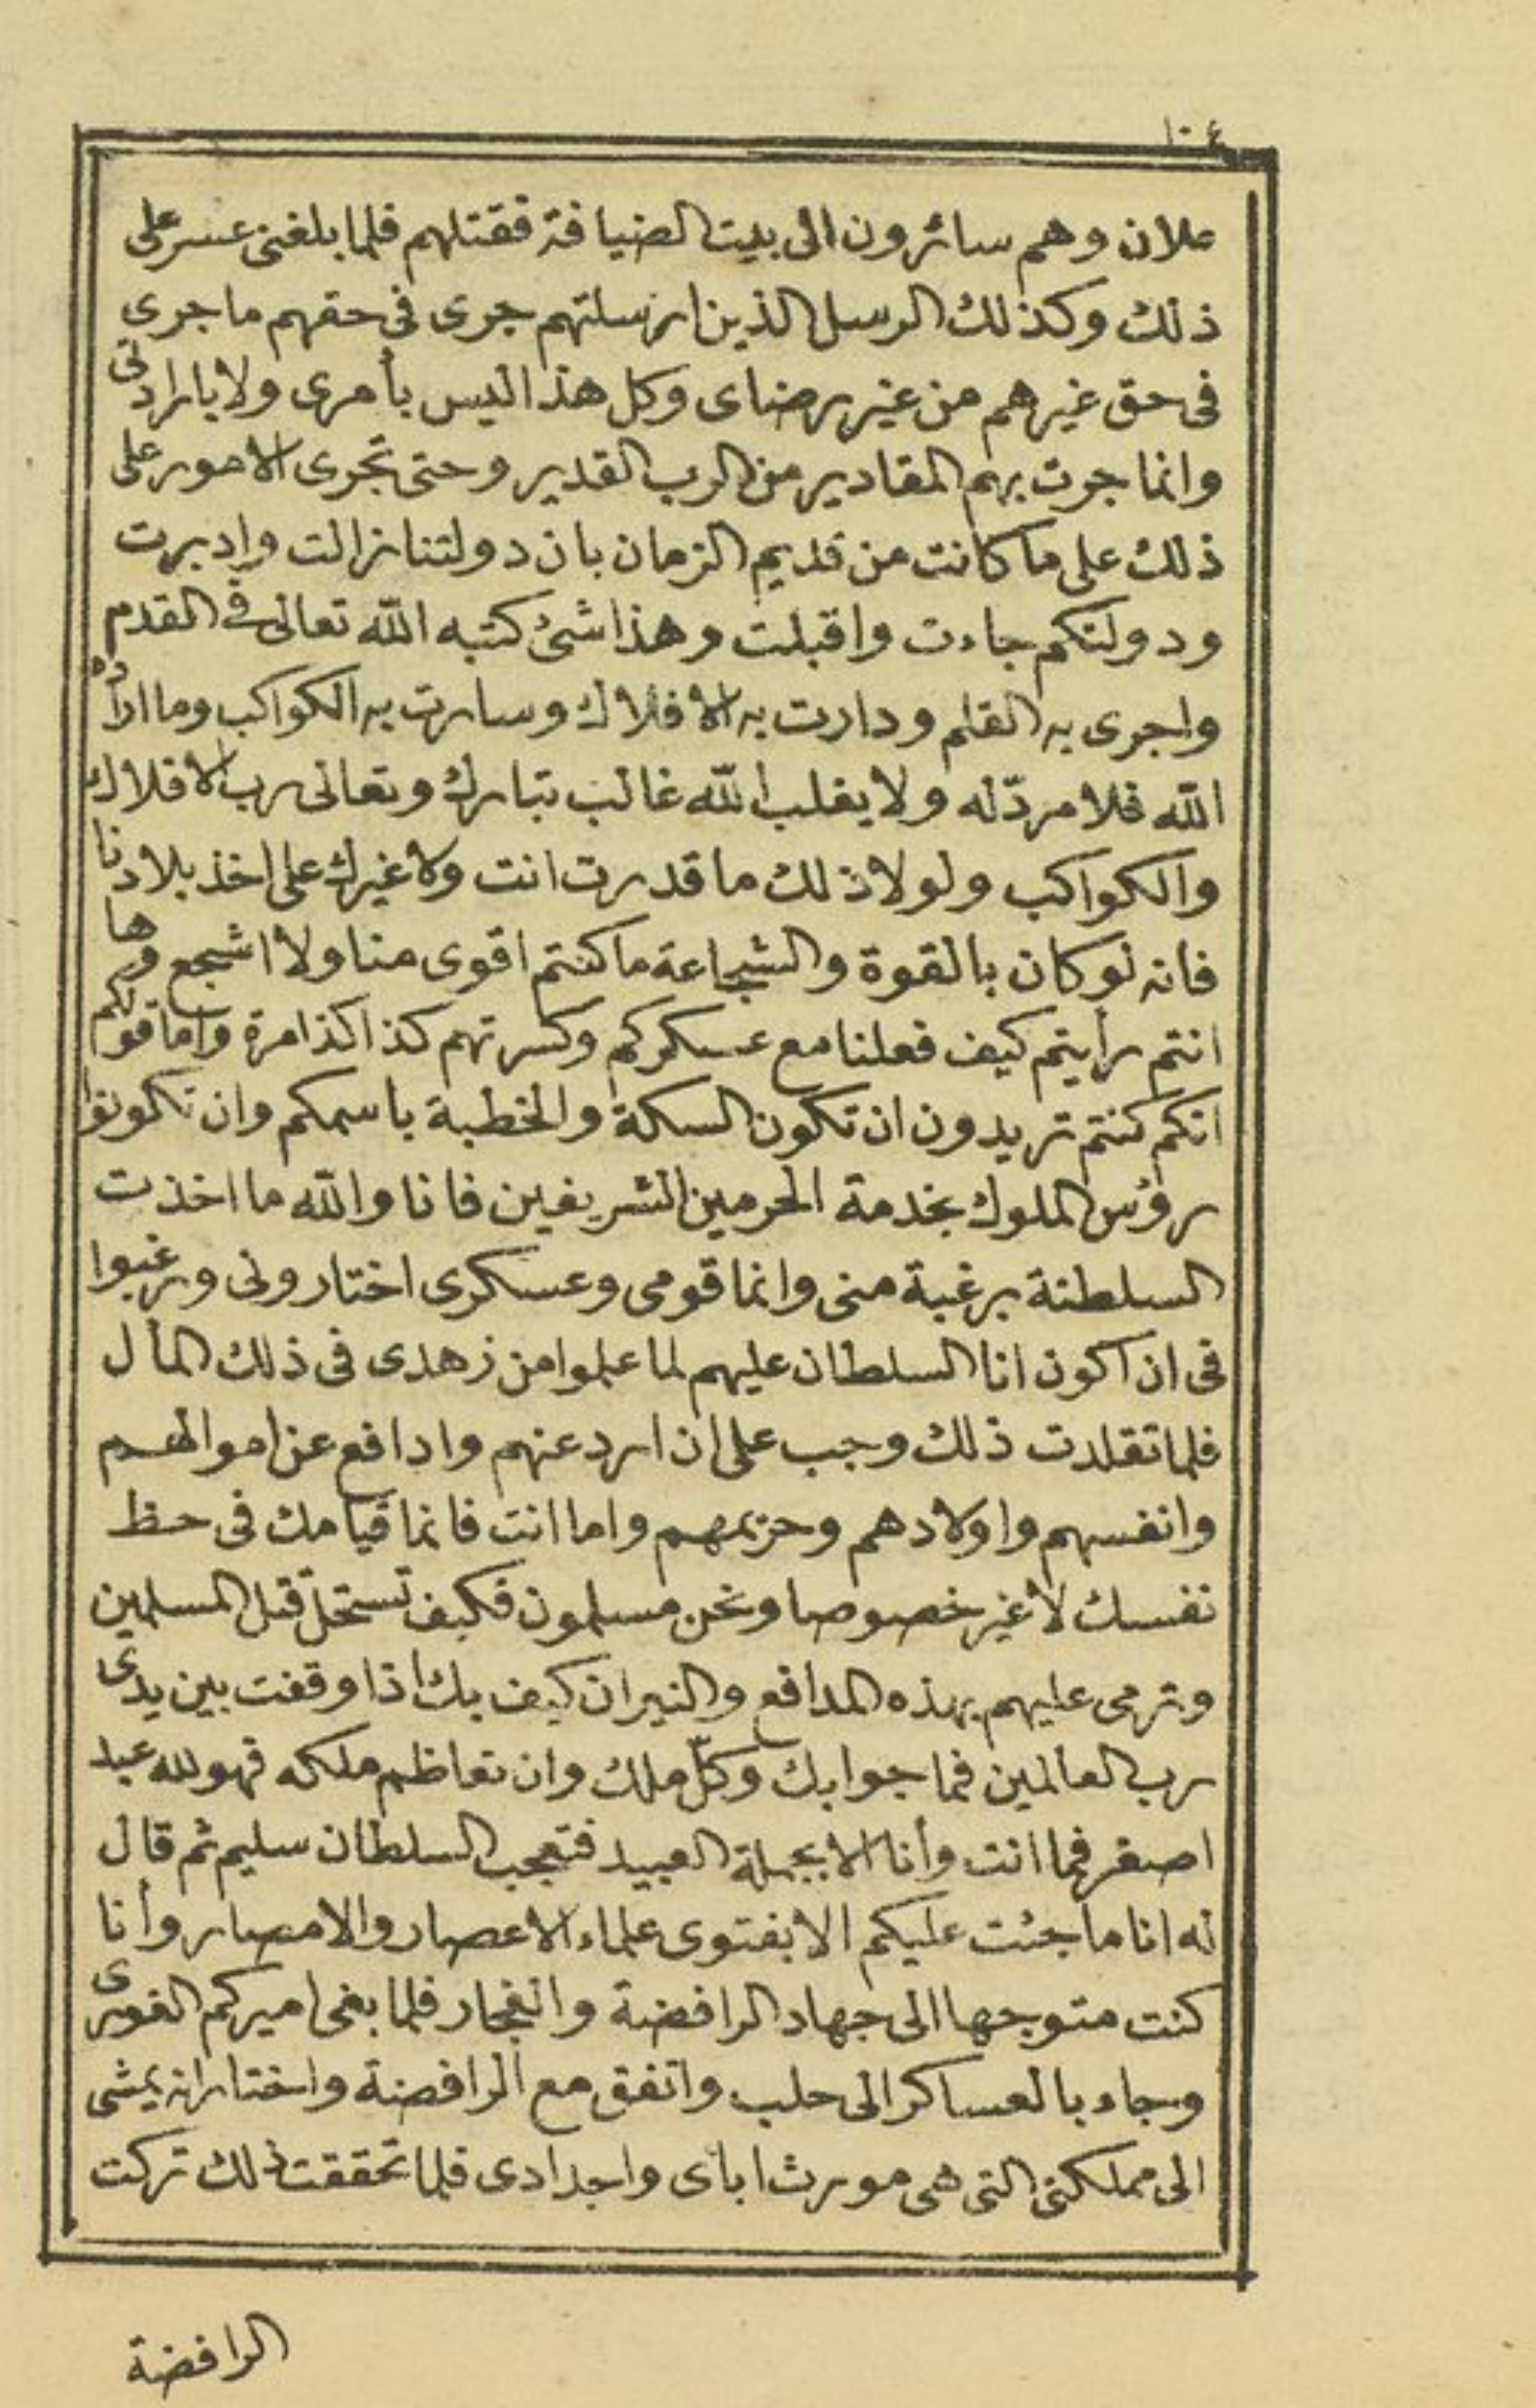 ١٠٤
علان وهم سائرون الى بيت الضيافة فقتلهم فلما بلغنى عسر على
ذلك وكذلك الرسل الذين ارسلتهم جرى فى حقهم ما جرى
فى حق غيرهم من غير رضاى وكل هذا ليس بأمرى ولا بارادتى
وانما جرت بهم المقادير من الرب القدير وحتى تجرى الامور على
ذلك على ما كانت من قديم الزمان بان دولتنا زالت وادبرت
ودولتكم جاءت واقبلت وهذا شئ كتبه الله تعالى فى القدم
واجرى به القلم ودارت به الافلاك وسارت به الكواكب وما اراده
الله فلا مردّ له ولا يغلب الله غالب تبارك وتعالى رب الافلاك
والكواكب ولولا ذلك ما قدرت انت ولا غيرك على اخذ بلادنا
فانه لو كان بالقوة والشجاعة ما كنتم اقوى منا ولا اشجع وها
انتم رأيتم كيف فعلنا مع عسكركم وكسرتهم كذا كذا مرة واما قولكم
انكم كنتم تريدون ان تكون السكة والخطبة باسمكم وان تكونوا
رؤس الملوك بخدمة الحرمين الشريفين فانا والله ما اخذت
السلطنة برغبة منى وانما قومى وعسكرى اختارونى ورغبوا
فى ان اكون انا السلطان عليهم لما علموا من زهدى فى ذلك المأل
فلما تقلدت ذلك وجب على ان ارد عنهم وادافع عن اموالهم
وانفسهم واولادهم وحريمهم واما انت فانما قيامك فى حظ
نفسك لا غير خصوصا ونحن مسلمون فكيف تستحلّ قتل المسلمين
وترمى عليهم بهذه المدافع والنيران كيف بك اذا وقفت بين يدى
رب العالمين فما جوابك وكلّ ملك وان تعاظم ملكه فهو لله عبد
اصغر فما انت وأنا الا بجملة العبيد فتعجب السلطان سليم ثم قال
له انا ما جئت عليكم الا بفتوى علماء الاعصار والامصار وأنا
كنت متوجها الى جهاد الرافضة والفجار فلما بغى اميركم الغورى
وجاء بالعساكر الى حلب واتفق مع الرافضة واختار انه يمشى
الى مملكتى التى هى مورث اباى واجدادى فلما تحققت ذلك تركت
الرافضة